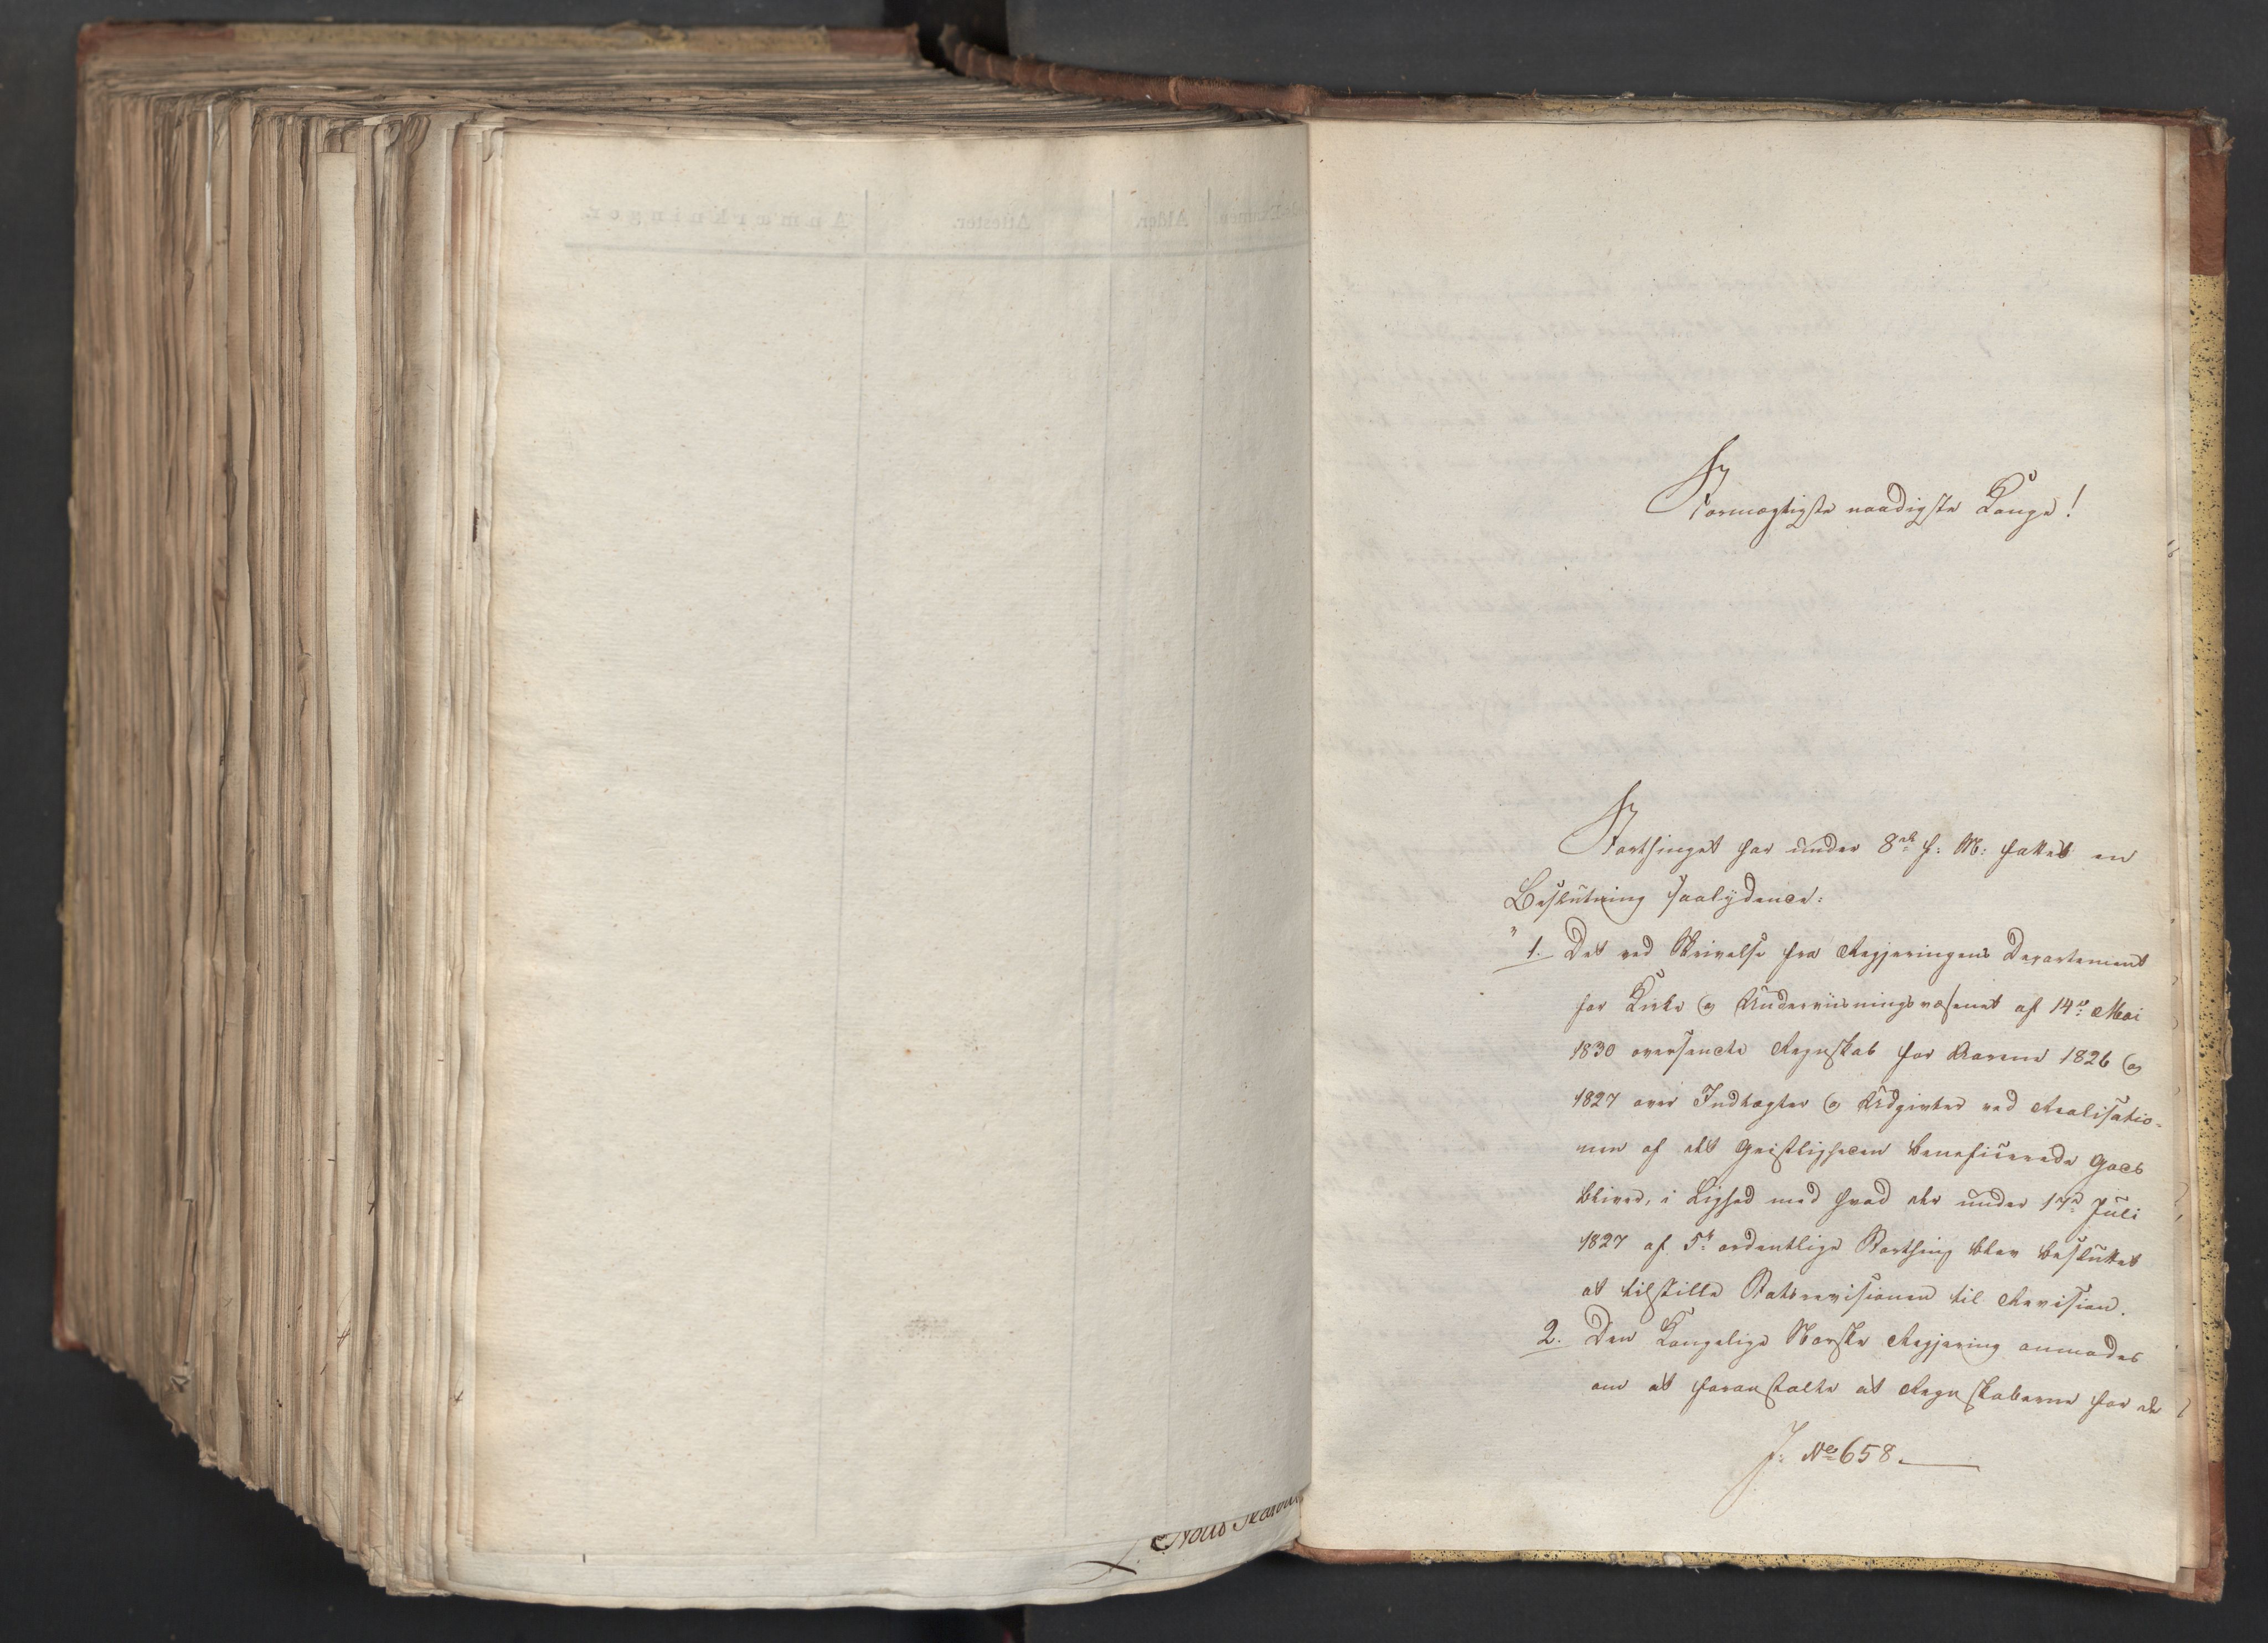 Stormægtigste naadigste Konge!
Storthinget har under 8de f: M: fattet en
Beslutning saalydende:
" 1. Det ved Skrivelse fra Regjeringens Departement
for Kirke og Underviisningsvæsenet af 14de Mai
1830 oversendte Regnskab for Aarene 1826 og
1827 over Indtægter og Udgivter ved Realisatio-
nen af det Geistligheden beneficerede Gods
bliver, i Lighed med hvad der under 17de Juli
1827 af 5te ordentlige Storthing blev besluttet
at tilstille Statsrevisionen til Revision.
2. Den Kongelige Norske Regjering anmodes
om at foranstalte at Regnskaberne for de
J: No 658.
Anmærkninger.
Attester.
Alder.